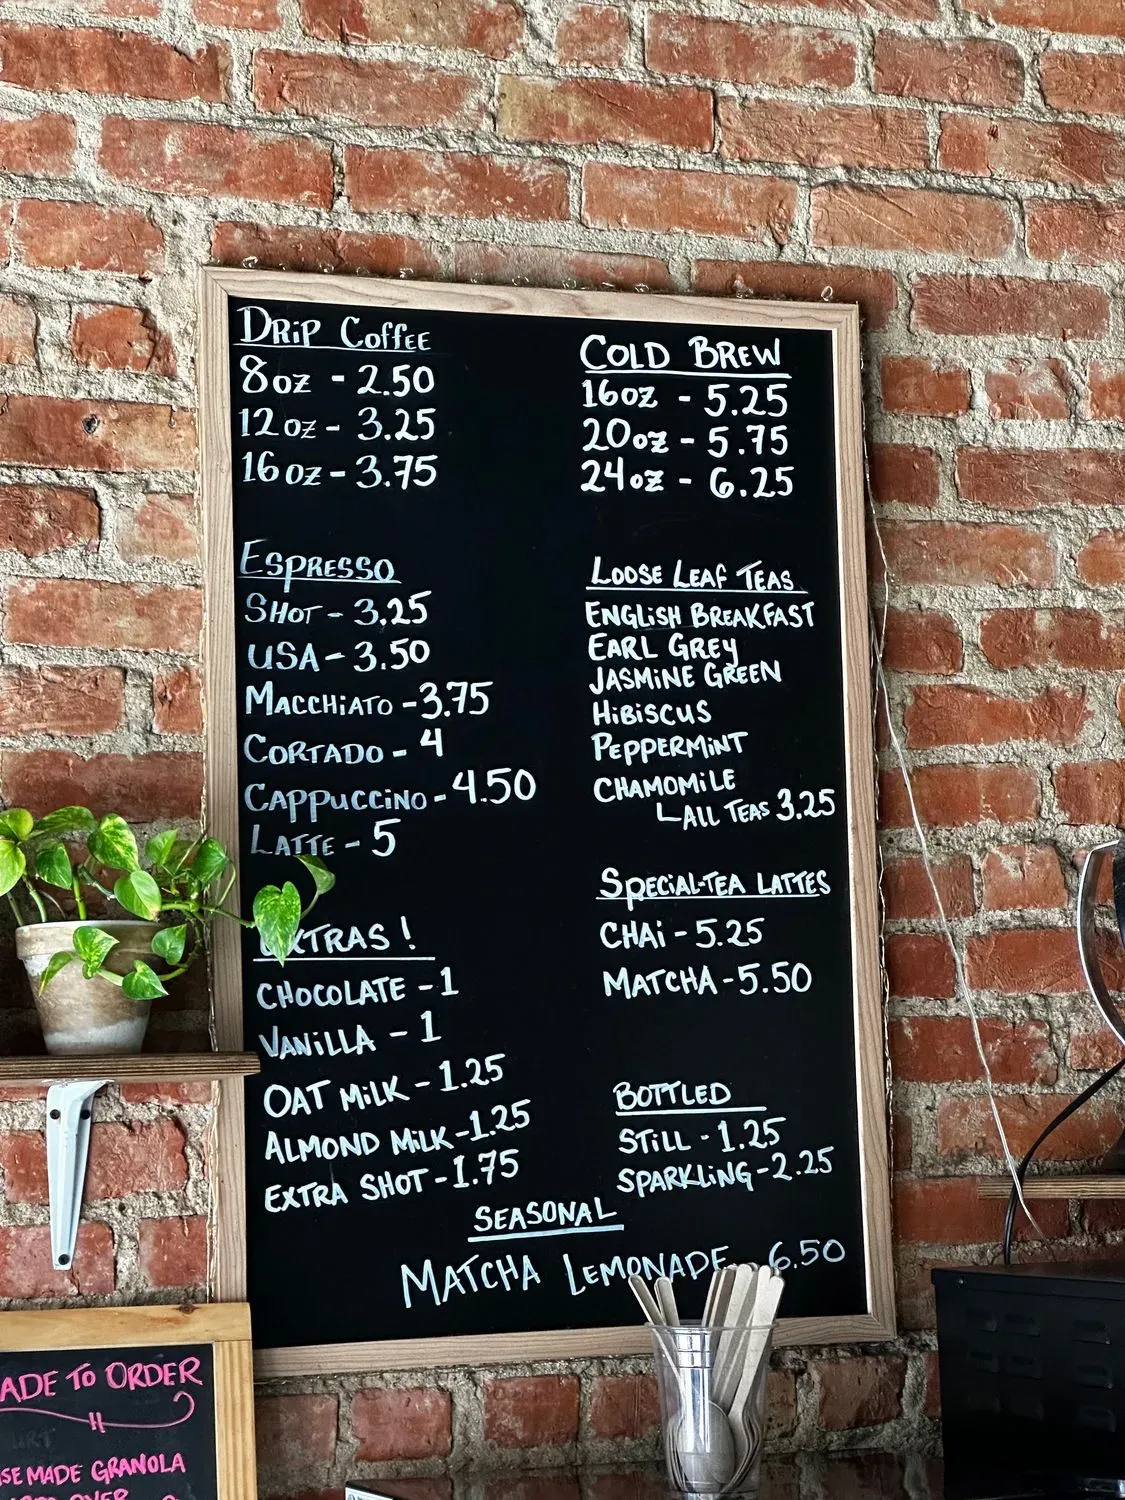 DRiP CoffEE
8oz - 2.50
12oz - 3.25
16oz - 3.75
ESPRESSO
SHOT - 3.25
USA - 3.50
MACCHiATO - 3.75
CORTADO - 4
CAPPUCCiNO - 4.50
LATTE - 5
EXTRAS!
CHOCOLATE - 1
VANiLLA - 1
OAT MiLK - 1.25
ALMOND MiLK - 1.25
EXTRA SHOT - 1.75
COLD BREW
16oz - 5.25
20oz - 5.75
24oz - 6.25
LOOSE LEAF TEAS
ENGLiSH BREAKFAST
EARL GREY
JASMiNE GREEN
HiBiSCUS
PEPPERMiNT
CHAMOMiLE
ALL TEAS 3.25
SPECIAL-TEA LATTES
CHAi - 5.25
MATCHA - 5.50
BOTTLED
STiLL - 1.25
SPARKLiNG - 2.25
SEASONAL
MATCHA LEMONADE 6.50
ADE To ORDER
SE MADE GRANOLA
OVER